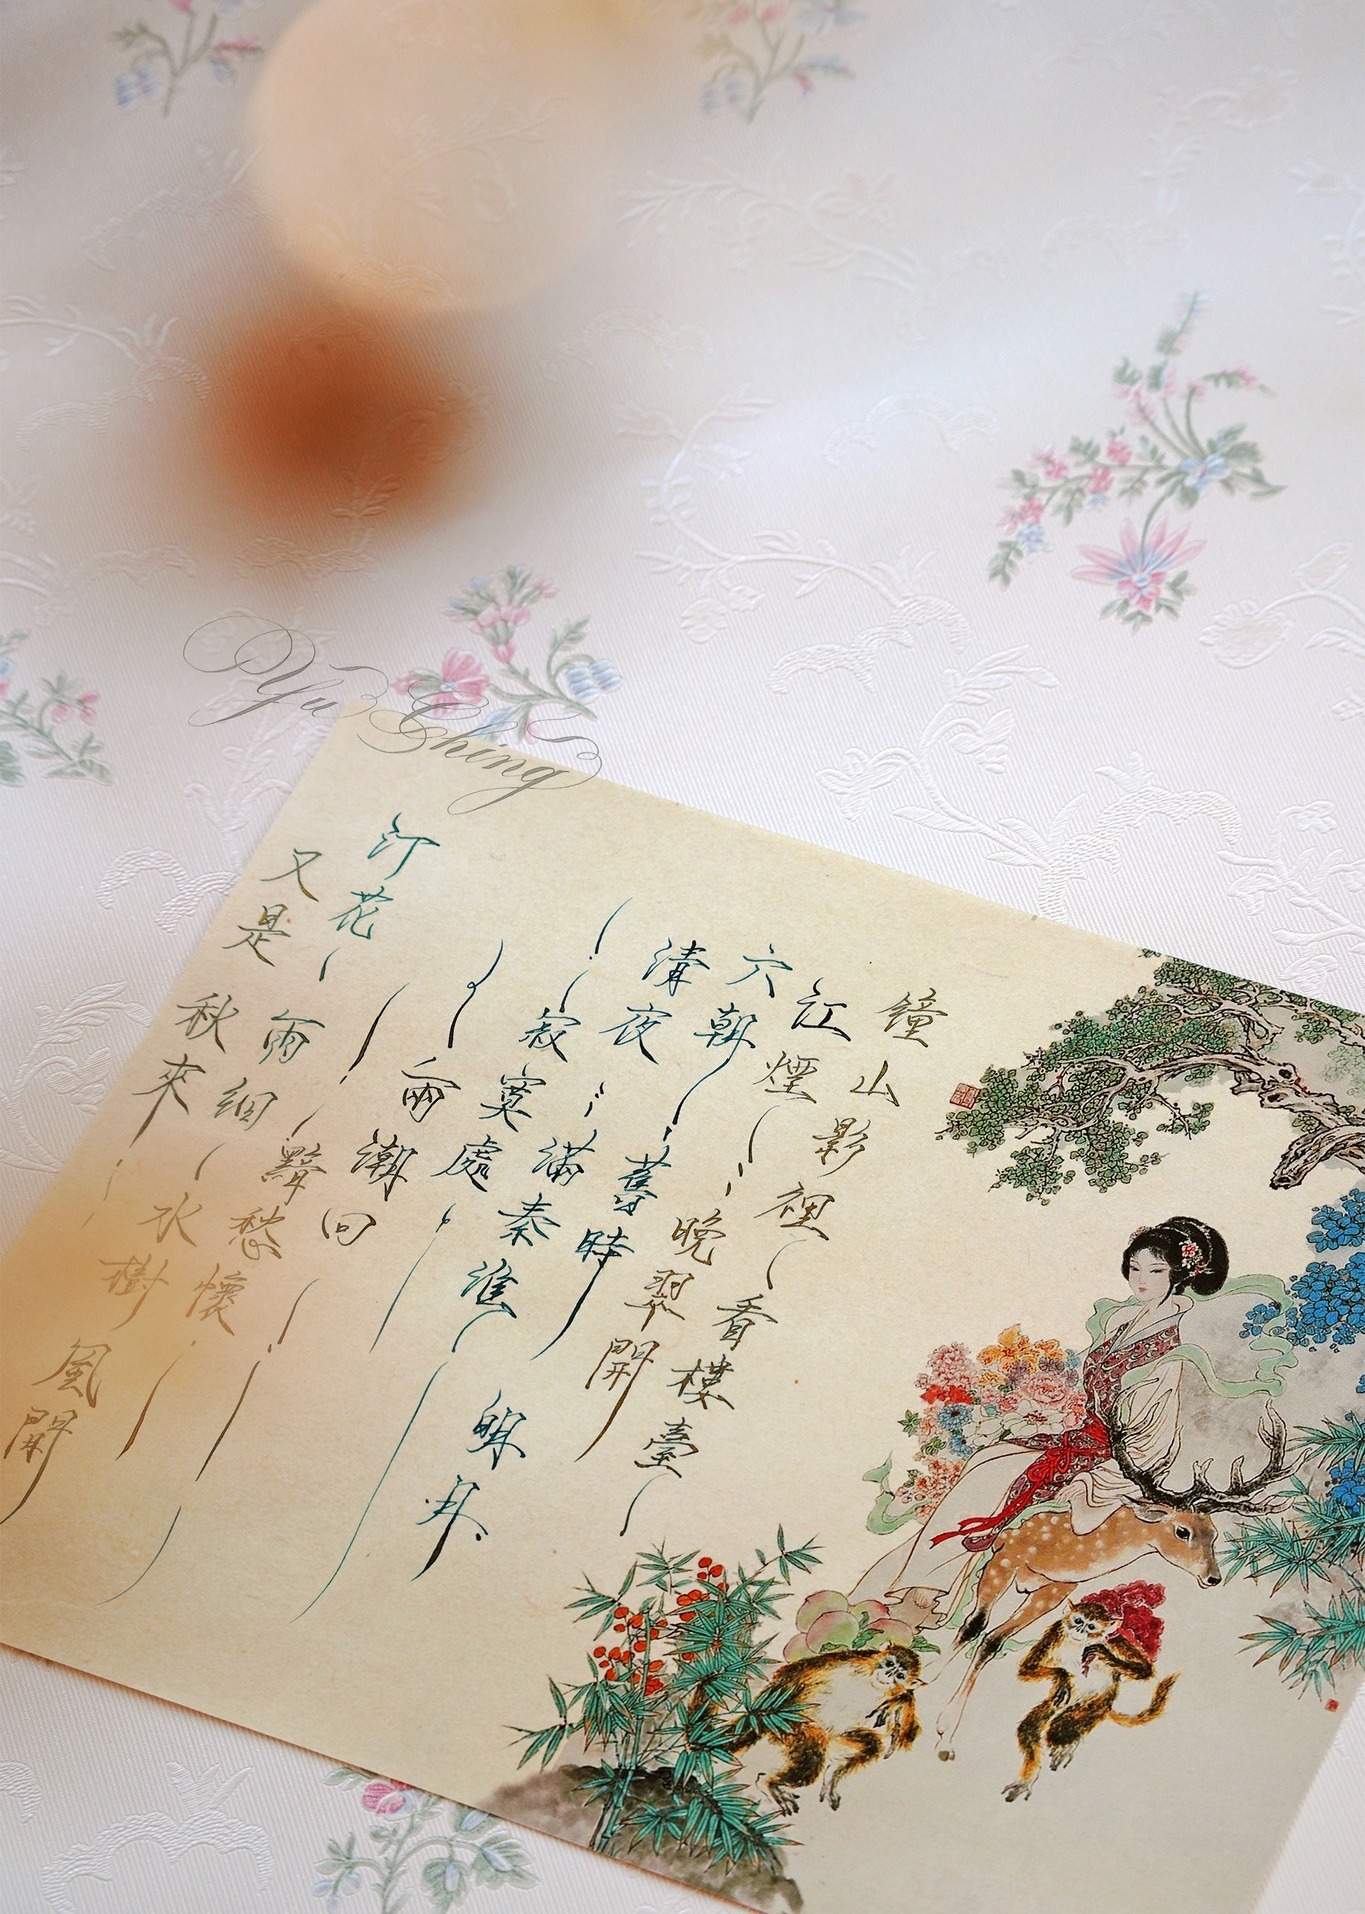 Yu Ching
鐘山影裡看樓臺
江煙晚翠開
六朝舊時明月
清夜滿秦淮
寂寞處
兩潮回
黯愁懷
汀花雨細水樹風開
又是秋來